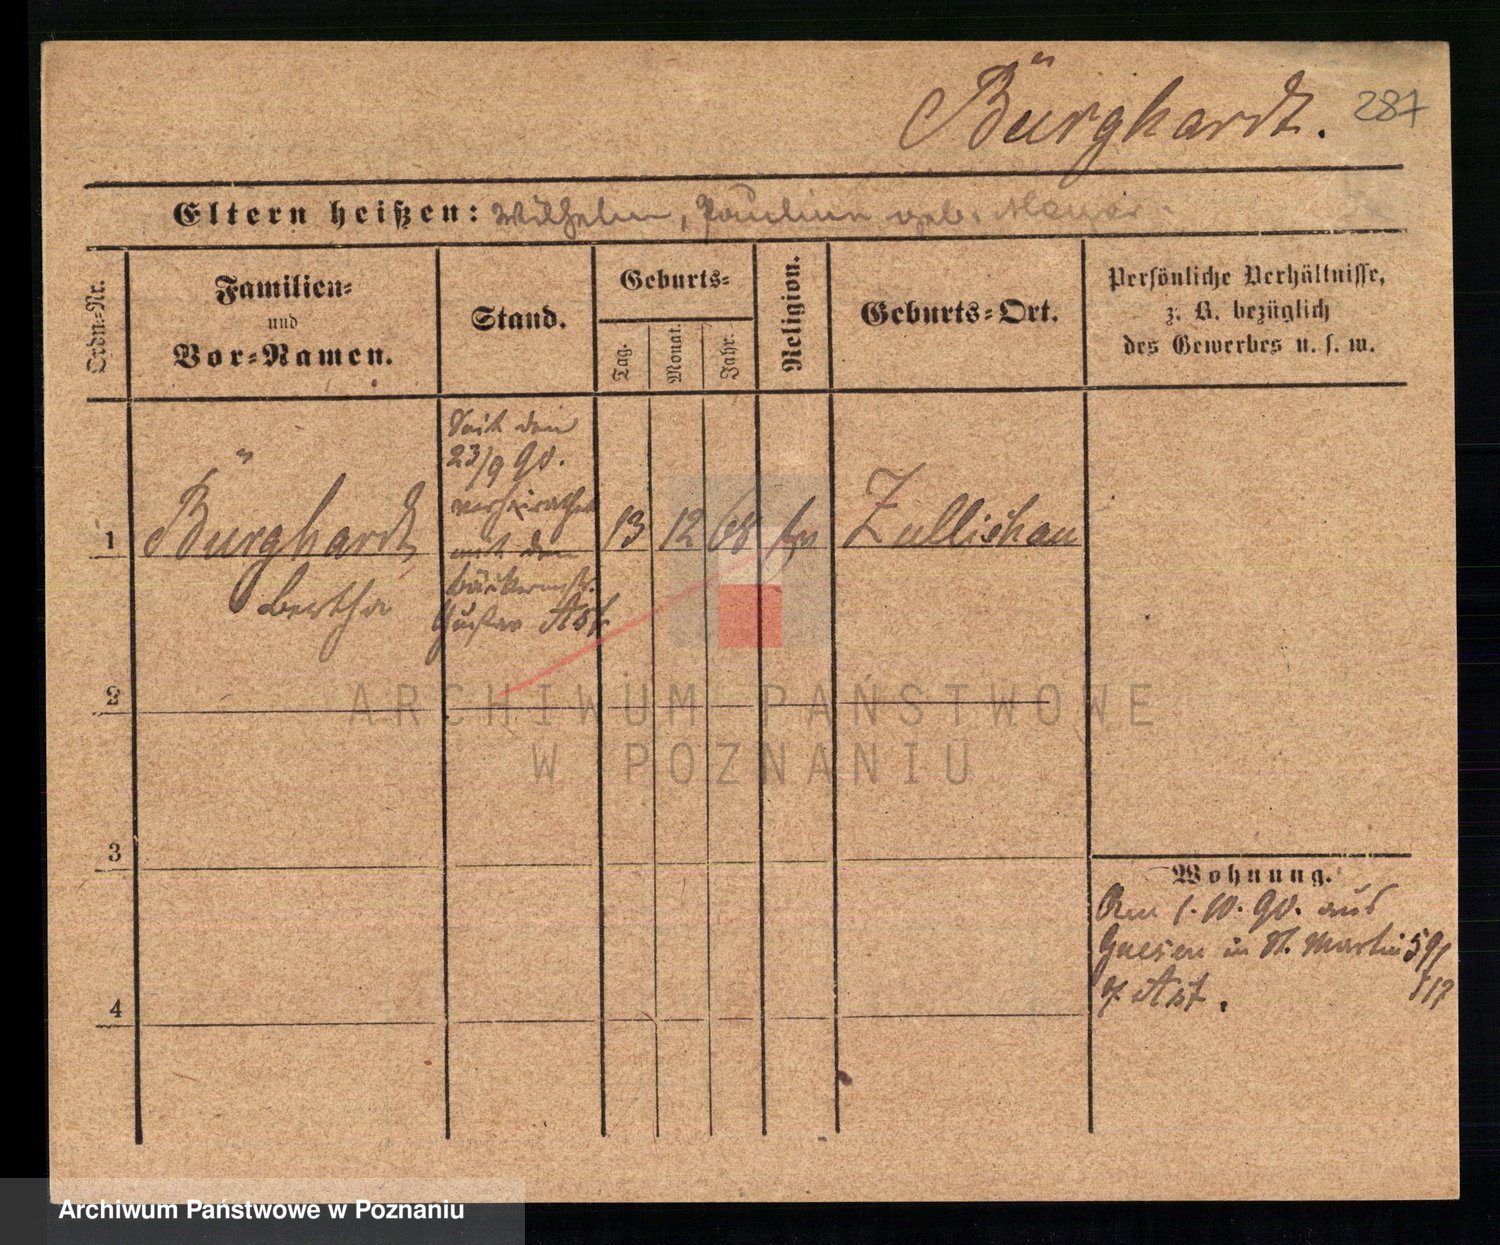 Bürghardt.
287
Eltern heißen: Wilhelm, Pauline geb. Meyer.
Ordn.-Nr.
Familien-
und
Vor-Namen.
Stand.
Geburts-
Tag.
Monat.
Jahr.
Religion.
Geburts-Ort.
Persönliche Verhältnisse,
z. B. bezüglich
des Gewerbes u. s. w.
1
Bürghardt
Bertha
Seit den
23/9 90.
verheirathet
mit dem
Bäckermstr.
Gustav Ast
13
12
68
Züllichau
2
3
4
Wohnung.
Am 1.10.90. aus
Gnesen in St. Martin 59/
Ast.
ARCHIWUM PAŃSTWOWE
W POZNANIU
Archiwum Państwowe w Poznaniu